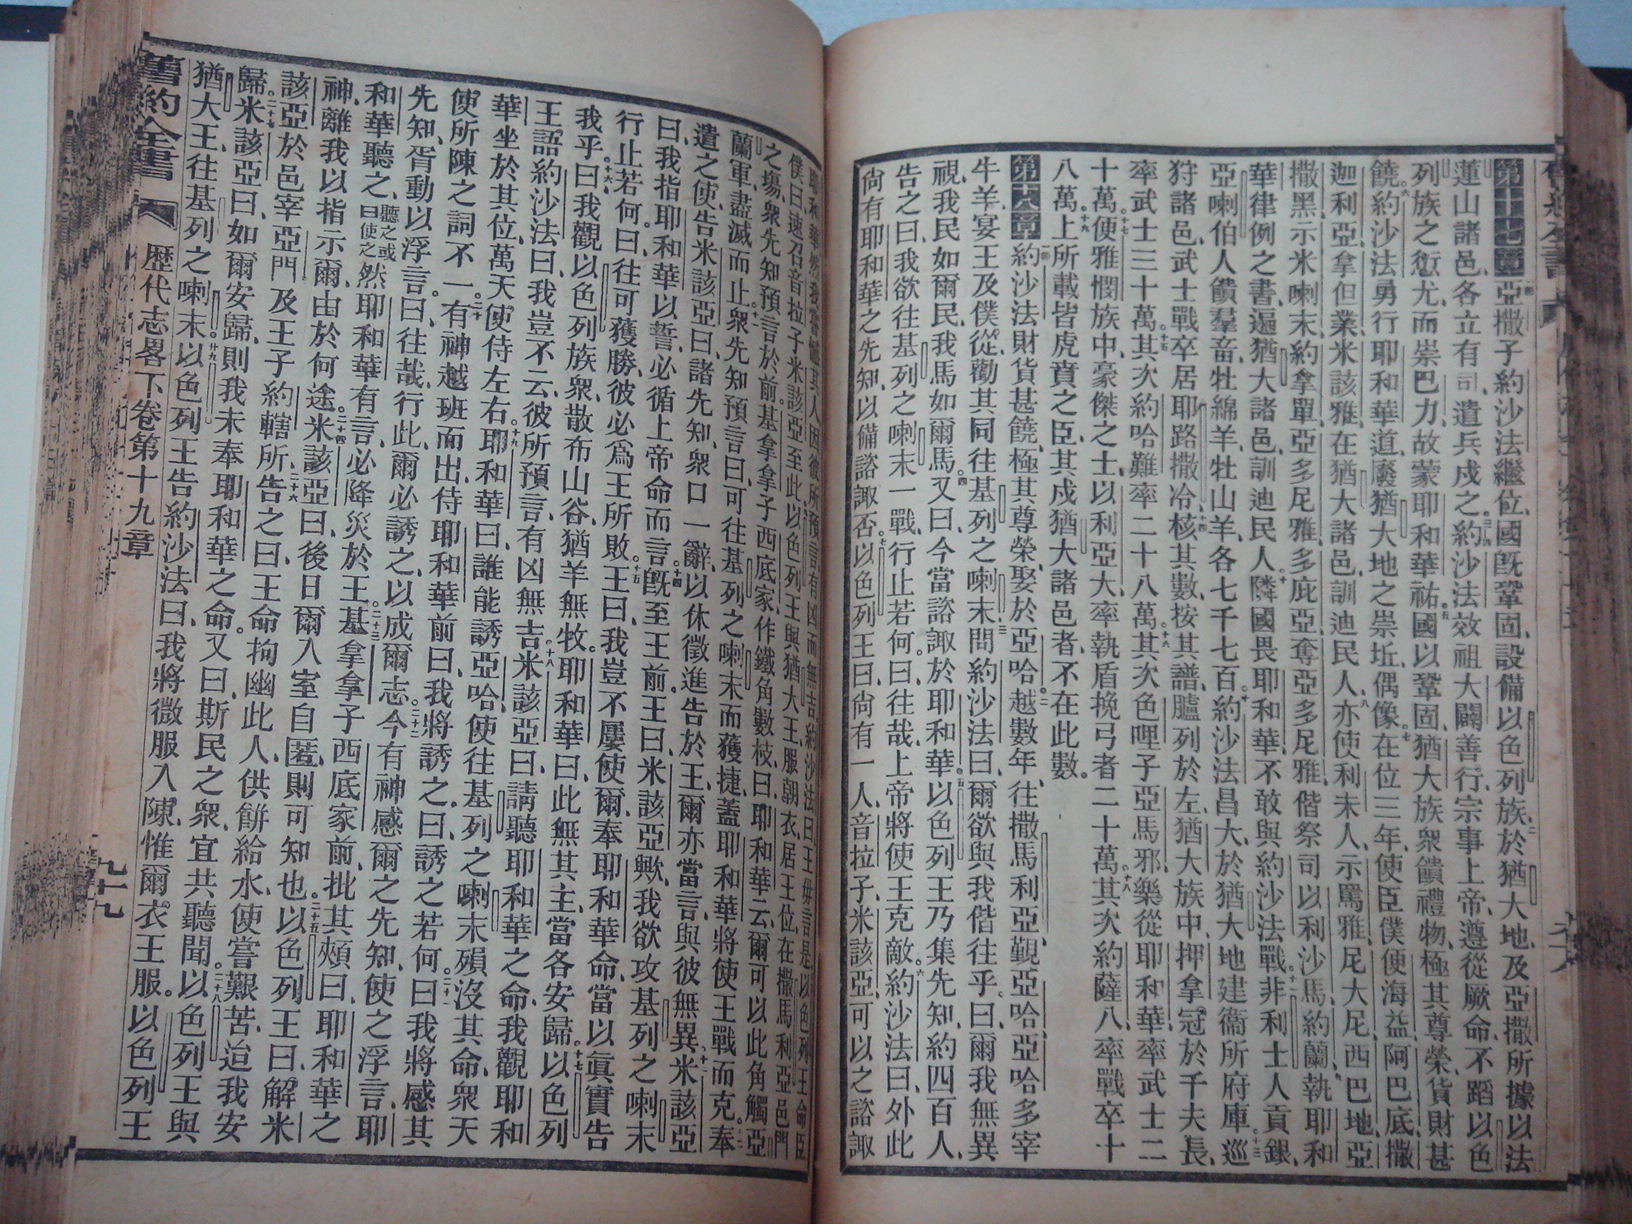 第十七章 亞撒子約沙法繼位國旣鞏固設備以色列族於猶大地及亞撒所據以法
蓮山諸邑各立有司遣兵戍之約沙法效祖大闢善行宗事上帝遵從厥命不蹈以色
列族之愆尤而崇巴力故蒙耶和華祐國以鞏固猶大族衆饋禮物極其尊榮貨財甚
饒約沙法勇行耶和華道廢猶大地之崇坵偶像在位三年使臣僕便海益阿巴底撒
迦利亞拿但業米該雅在猶大諸邑訓迪民人亦使利未人示罵雅尼大尼西巴地亞
撒黑示米喇末約拿單亞多尼雅多庇亞奪亞多尼雅偕祭司以利沙馬約蘭執耶和
華律例之書遍猶大諸邑訓迪民人隣國畏耶和華不敢與約沙法戰非利士人貢銀
亞喇伯人饋羣畜牡綿羊牡山羊各七千七百約沙法昌大於猶大地建衞所府庫巡
狩諸邑武士戰卒居耶路撒冷核其數按其譜臚列於左猶大族中押拿冠於千夫長
率武士三十萬其次約哈難率二十八萬其次色哩子亞馬邪樂從耶和華率武士二
十萬便雅憫族中豪傑之士以利亞大率執盾挽弓者二十萬其次約薩八率戰卒十
八萬上所載皆虎賁之臣其戍猶大諸邑者不在此數
第十八章 約沙法財貨甚饒極其尊榮娶於亞哈越數年往撒馬利亞覲亞哈亞哈多宰
牛羊宴王及僕從勸其同往基列之喇末問約沙法曰爾欲與我偕往乎曰爾我無異
視我民如爾民我馬如爾馬又曰今當諮諏於耶和華以色列王乃集先知約四百人
告之曰我欲往基列之喇末一戰行止若何曰往哉上帝將使王克敵約沙法曰外此
尙有耶和華之先知以備諮諏否以色列王曰尙有一人音拉子米該亞可以之諮諏
僕曰速召音拉子米該亞至此以色列王與猶大王服朝衣居王位在撒馬利亞邑門
之場衆先知預言於前基拿拿子西底家作鐵角數枝曰耶和華云爾可以此角觸亞
蘭軍盡滅而止衆先知預言曰可往基列之喇末而獲捷蓋耶和華將使王戰而克奉
遣之使告米該亞曰諸先知衆口一辭以休徵進告於王爾亦當言與彼無異米該亞
曰我指耶和華以誓必循上帝命而言旣至王前王曰米該亞歟我欲攻基列之喇末
行止若何曰往可獲勝彼必爲王所敗王曰我豈不屢使爾奉耶和華命當以眞實告
我乎曰我觀以色列族衆散布山谷猶羊無牧耶和華曰此無其主當各安歸以色列
王語約沙法曰我豈不云彼所預言有凶無吉米該亞曰請聽耶和華之命我觀耶和
華坐於其位萬天使侍左右耶和華曰誰能誘亞哈使往基列之喇末殞沒其命衆天
使所陳之詞不一有神越班而出侍耶和華前曰我將誘之曰誘之若何曰我將感其
先知胥動以浮言曰往哉行此爾必誘之以成爾志今有神感爾之先知使之浮言耶
和華聽之聽之或曰使之然耶和華有言必降災於王基拿拿子西底家前批其頰曰耶和華之
神離我以指示爾由於何途米該亞曰後日爾入室自匿則可知也以色列王曰解米
該亞於邑宰亞門及王子約轄所告之曰王命拘幽此人供餅給水使嘗艱苦迨我安
歸米該亞曰如爾安歸則我未奉耶和華之命又曰斯民之衆宜共聽聞以色列王與
猶大王往基列之喇末以色列王告約沙法曰我將微服入陳惟爾衣王服以色列王
舊約全書 歷代志畧下卷第十九章 九十九